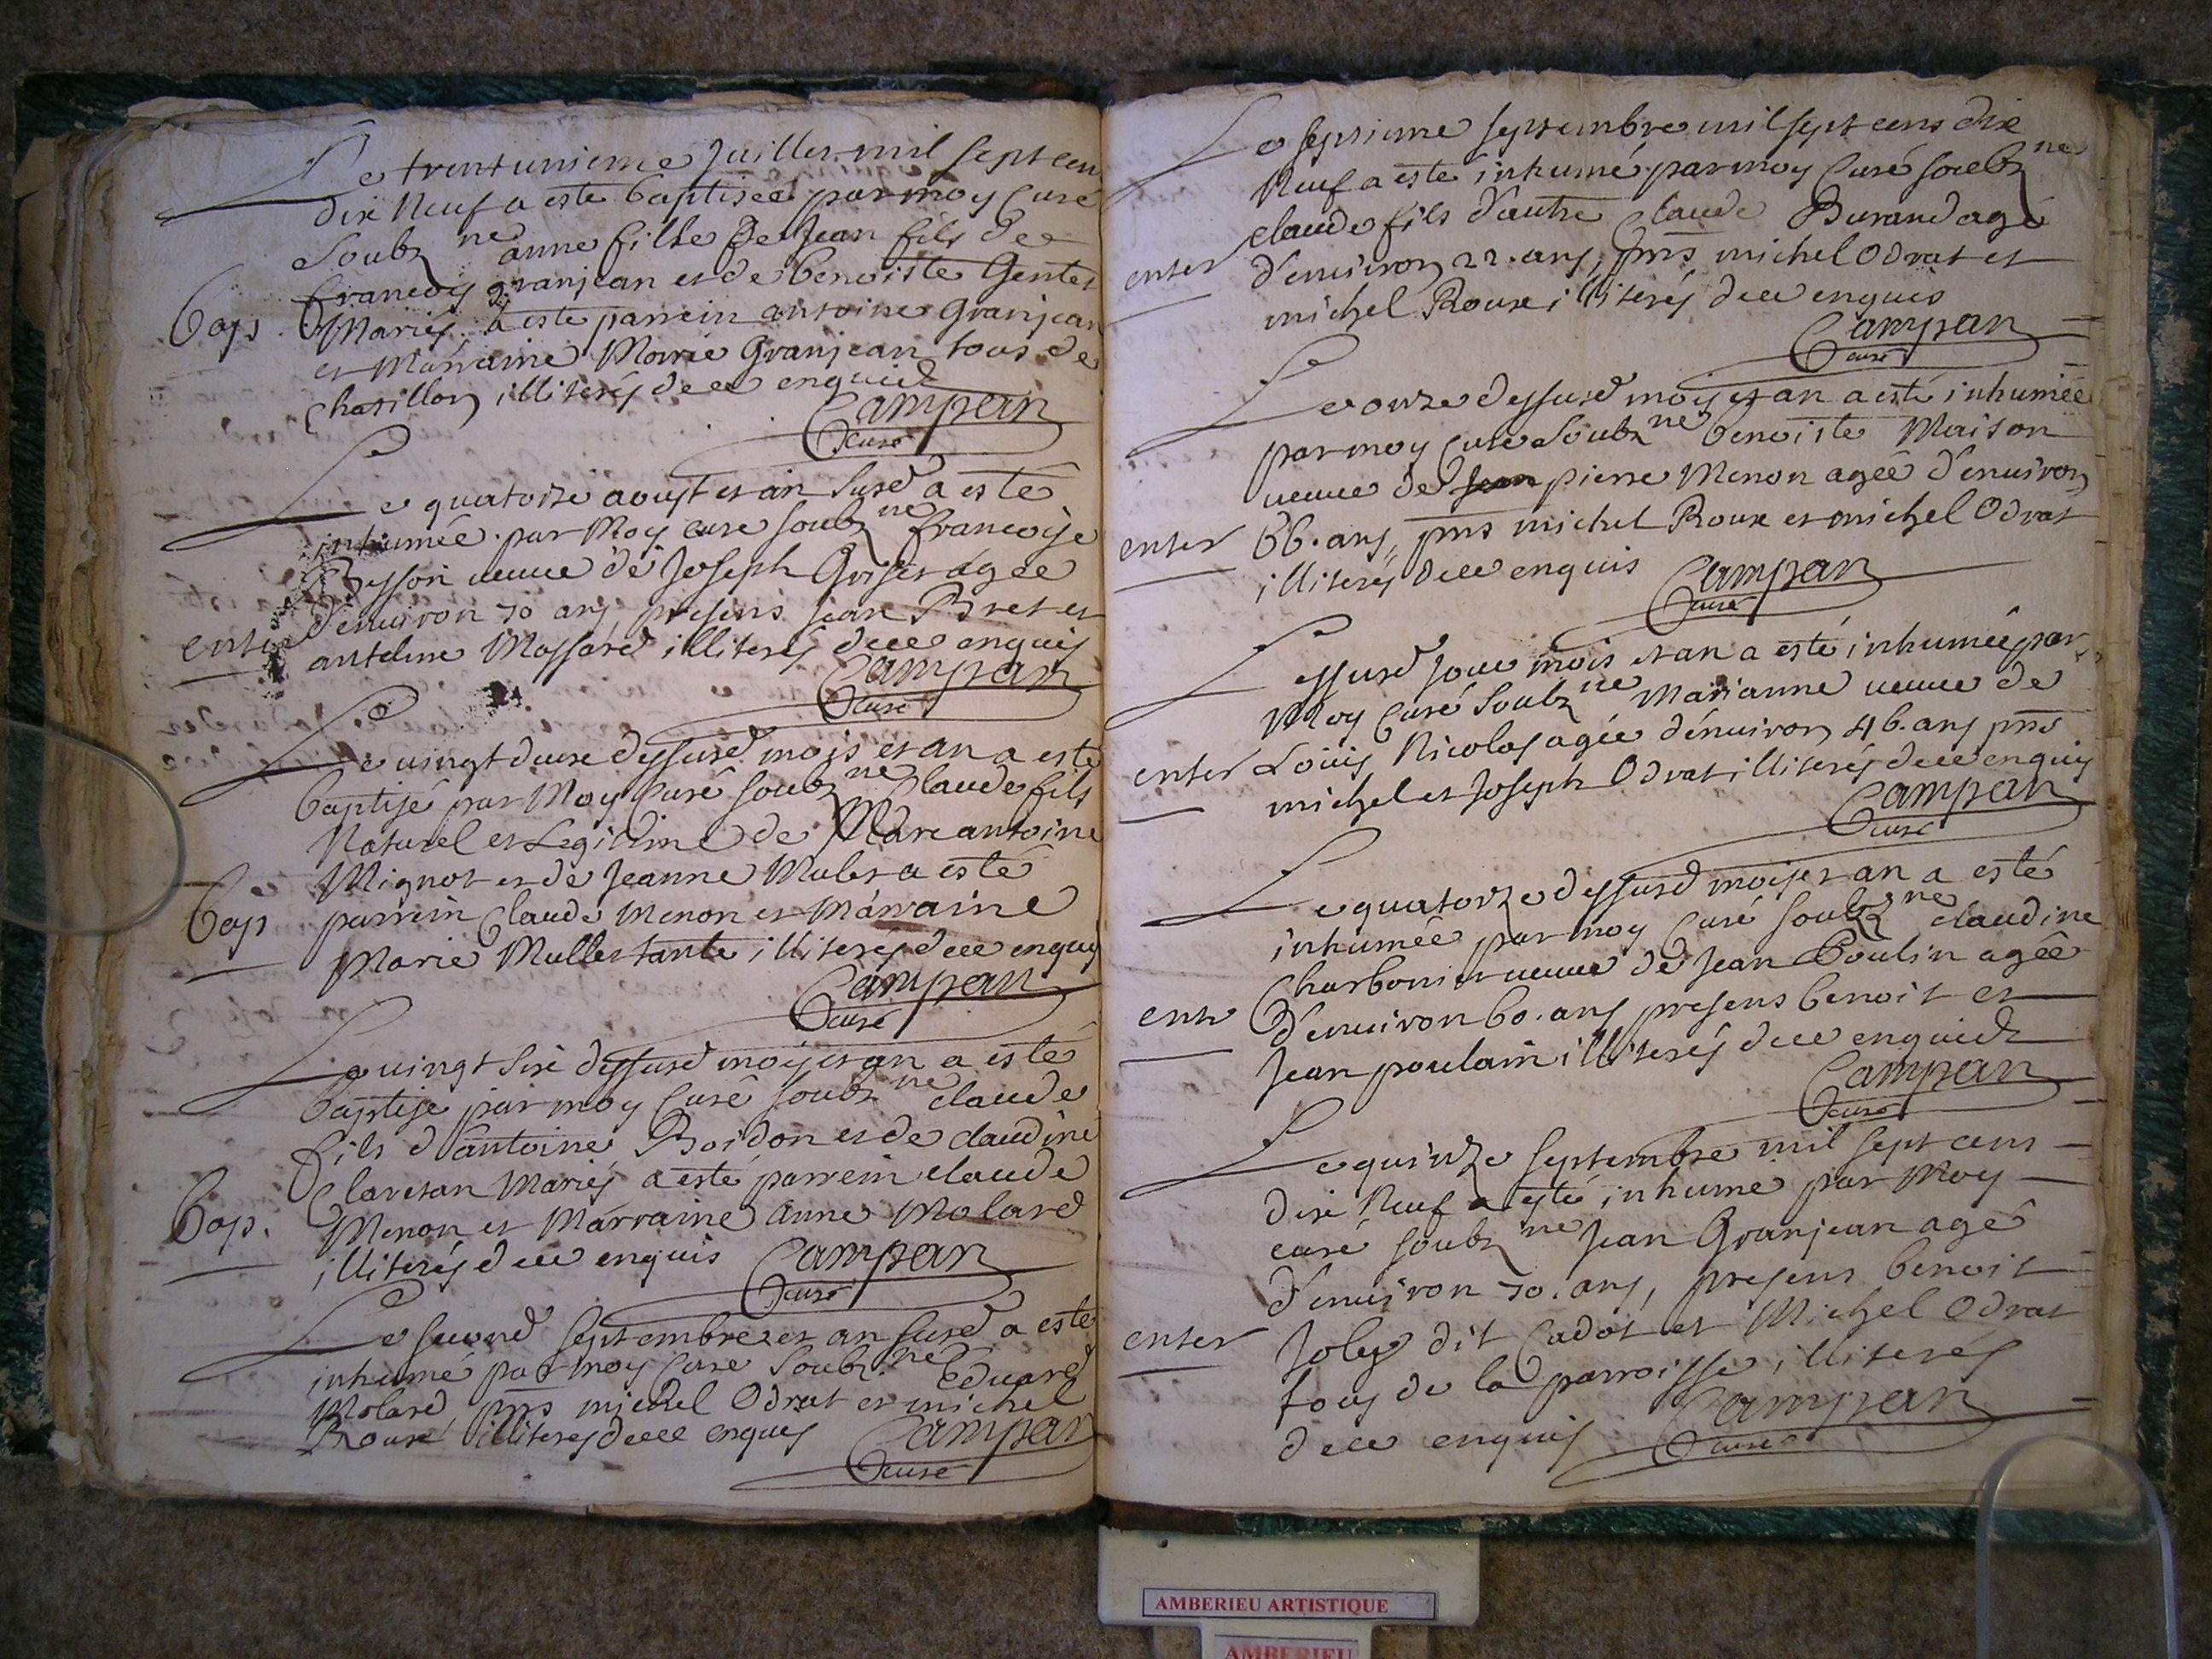 Le trentunieme Juillet mil sept cen
dix neuf a este baptisée par moy curé
soubz ne anne fille de Jean fils de
francois granjean et de benoiste Gentet
Bap. Mariés a este parrein antoine Granjean
et Marraine Marie Granjean tous de
Chatillon illiterés de ce enquis
Campan
Curé
Le quatorze aoust et an susd a este
inhumée par Moy curé soubz ne francoise
Besson veuve de Joseph Griset agée
d'environ 70 ans, presens Jean Bret et
enter antelme Massard illiterés de ce enquis
Campan
Curé
Le vingt deux dessusd mois et an a este
baptisé par Moy Curé soubz ne Claude fils
Naturel et Legitime de Marc antoine
Mignot et de Jeanne Mulet a esté
Bap parrein Claude Menon et Marraine
Marie Mullet tante illiterés de ce enquis
Campan
Curé
Le vingt six dessusd mois et an a esté
baptisé par moy Curé soubz ne claude
fils d'antoine Boidon et de claudine
Claretan Mariés a esté parrein claude
Bap. Menon et Marraine anne Molard
illiterés de ce enquis Campan
Curé
Le second septembre et an susd a este
inhumé par moy Curé soubz ne Eduard
Molard pns michel Odrat et michel
Roux illiterés de ce enquis Campan
Curé
Le septieme septembre mil sept cens dix
Neuf a esté inhumé par moy Curé soubz ne
claude fils d'autre Claude Burand agé
enter d'environ 22. ans, pns michel Odrat et
michel Roux illiterés de ce enquis
Campan
Curé
Le onze dessusd mois et an a esté inhumée
par moy Curé soubz ne benoiste Maison
veuve de Jean pierre Menon agée d'environ
enter 66. ans, pns michel Roux et michel Odrat
illiterés de ce enquis Campan
Curé
Les susd jour mois et an a esté inhumée par
Moy Curé soubz ne Marianne veuve de
enter Loüis Nicolas agée d'environ 46. ans pns
michel et Joseph Odrat illiterés de ce enquis
Campan
Curé
Le quatorze dessusd mois et an a esté
inhumée par moy Curé soubz ne claudine
Charbonier veuve de Jean Poulin agée
ente d'environ 60. ans presens benoit et
Jean poulain illiterés de ce enquis
Campan
Curé
Le quinze septembre mil sept cens
dix Neuf a esté inhumé par Moy
curé soubz ne Jean Granjean agé
d'environ 70. ans, presens benoit
enter Joly dit Cadot et Michel Odrat
tous de la parroisse illiterés
de ce enquis Campan
Curé
AMBERIEU ARTISTIQUE
AMBERIEU